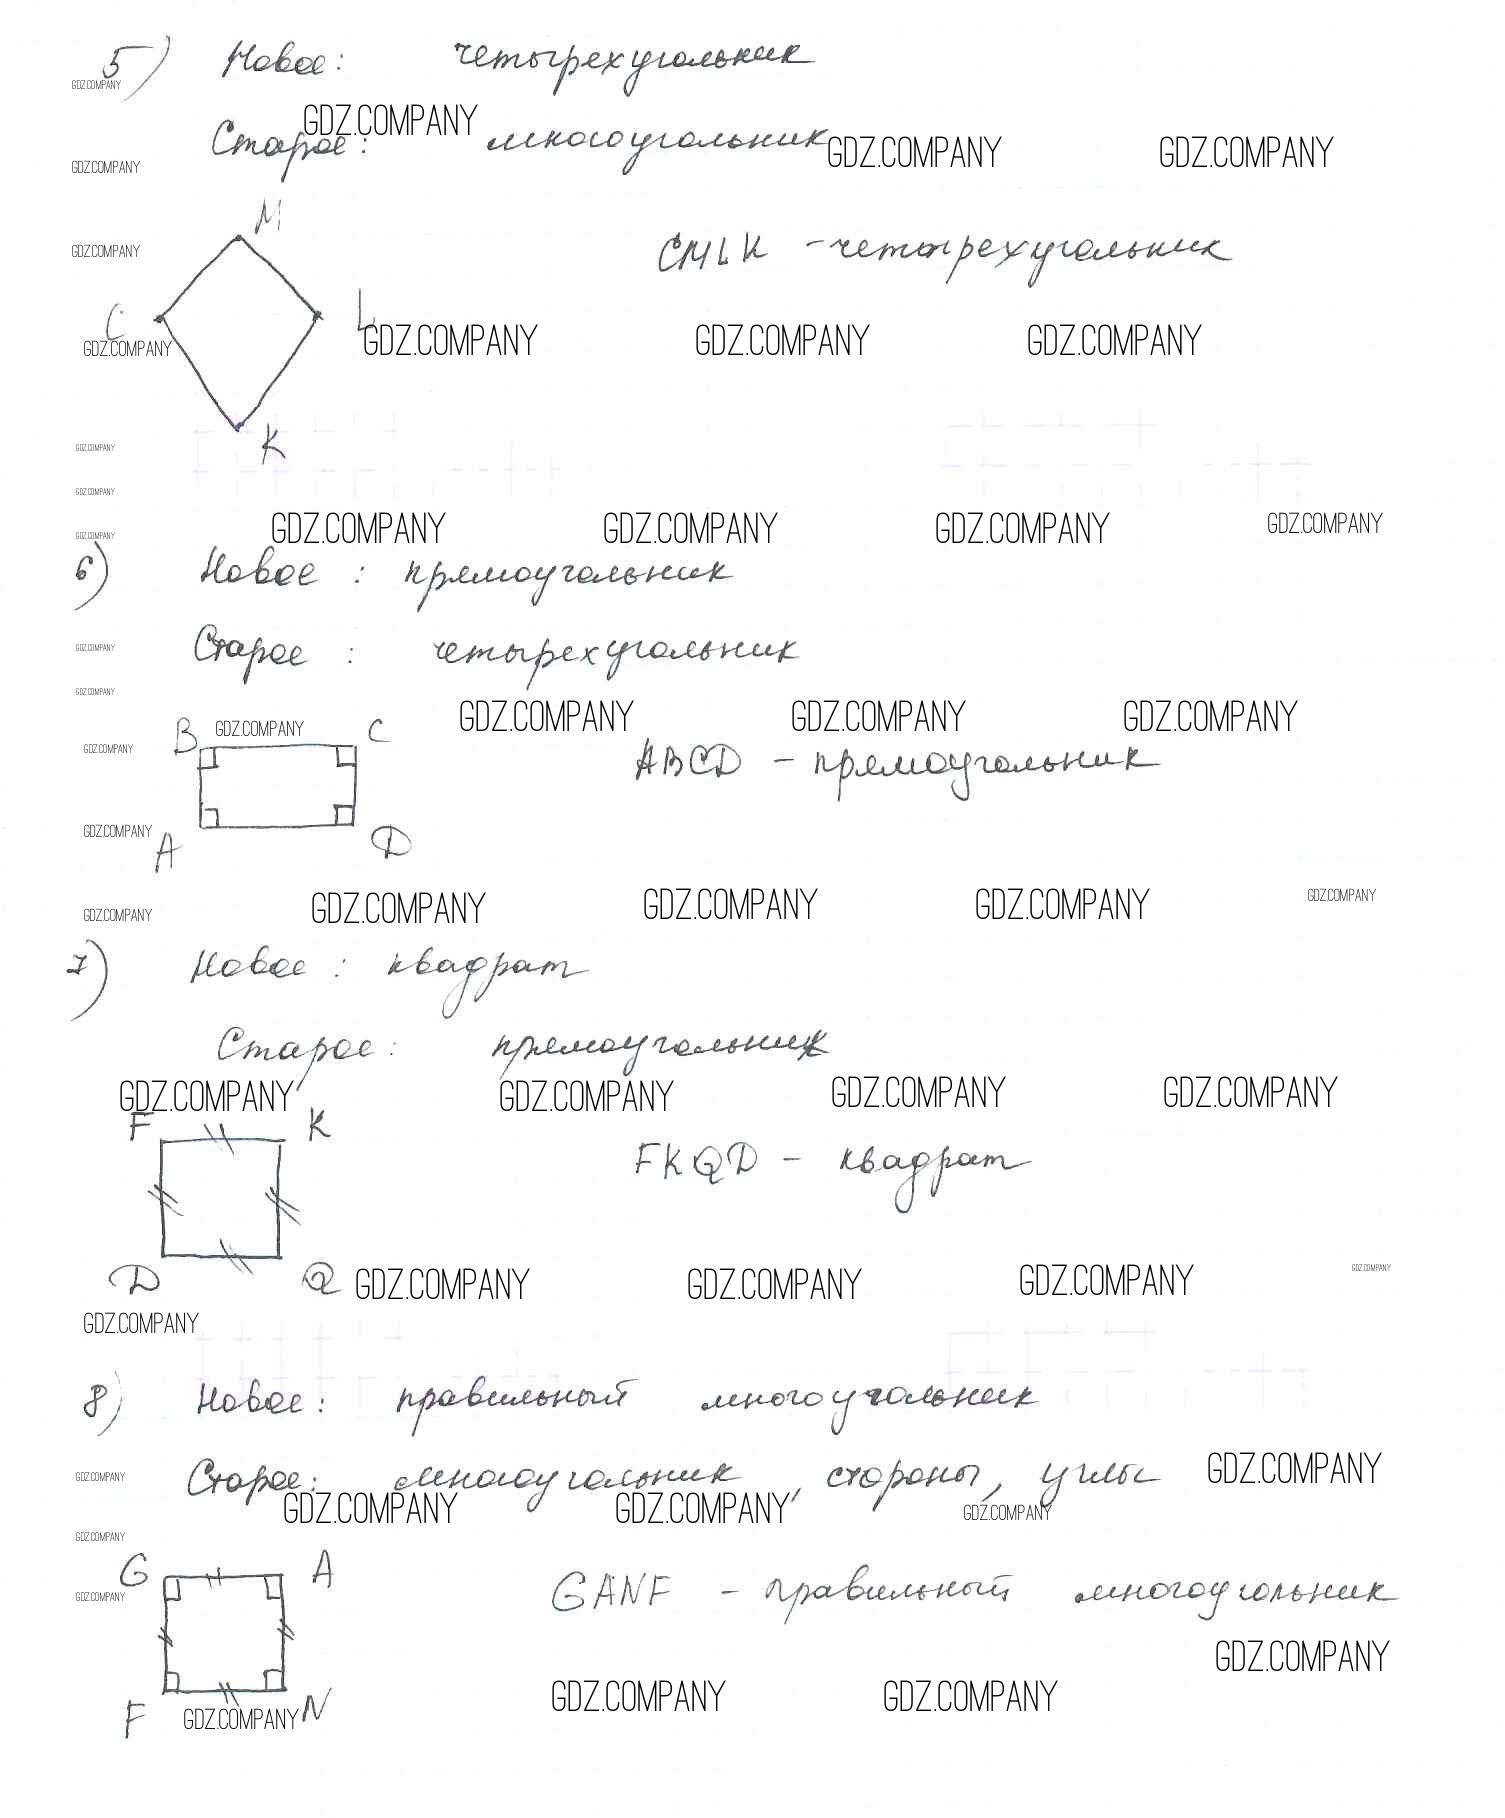 5) Новое: четырехугольник
GDZ.COMPANY
GDZ.COMPANY
Старое: многоугольник
GDZ.COMPANY GDZ.COMPANY
GDZ.COMPANY
M
GDZ.COMPANY
CMLK - четырехугольник
C L
GDZ.COMPANY GDZ.COMPANY GDZ.COMPANY GDZ.COMPANY
K
GDZ.COMPANY
GDZ.COMPANY
GDZ.COMPANY GDZ.COMPANY GDZ.COMPANY GDZ.COMPANY GDZ.COMPANY
6) Новое : прямоугольник
Старое : четырехугольник
GDZ.COMPANY
GDZ.COMPANY
GDZ.COMPANY GDZ.COMPANY GDZ.COMPANY
B GDZ.COMPANY C
GDZ.COMPANY
ABCD - прямоугольник
GDZ.COMPANY
A D
GDZ.COMPANY GDZ.COMPANY GDZ.COMPANY GDZ.COMPANY GDZ.COMPANY
7) Новое : квадрат
Старое: прямоугольник
GDZ.COMPANY GDZ.COMPANY GDZ.COMPANY GDZ.COMPANY
F K
FKQD - квадрат
D Q GDZ.COMPANY GDZ.COMPANY GDZ.COMPANY GDZ.COMPANY
GDZ.COMPANY
8) Новое: правильный многоугольник
Старое: многоугольник, стороны, углы GDZ.COMPANY
GDZ.COMPANY
GDZ.COMPANY GDZ.COMPANY GDZ.COMPANY
GDZ.COMPANY
G A
GDZ.COMPANY
GANF - правильный многоугольник
GDZ.COMPANY
GDZ.COMPANY GDZ.COMPANY
F GDZ.COMPANY N